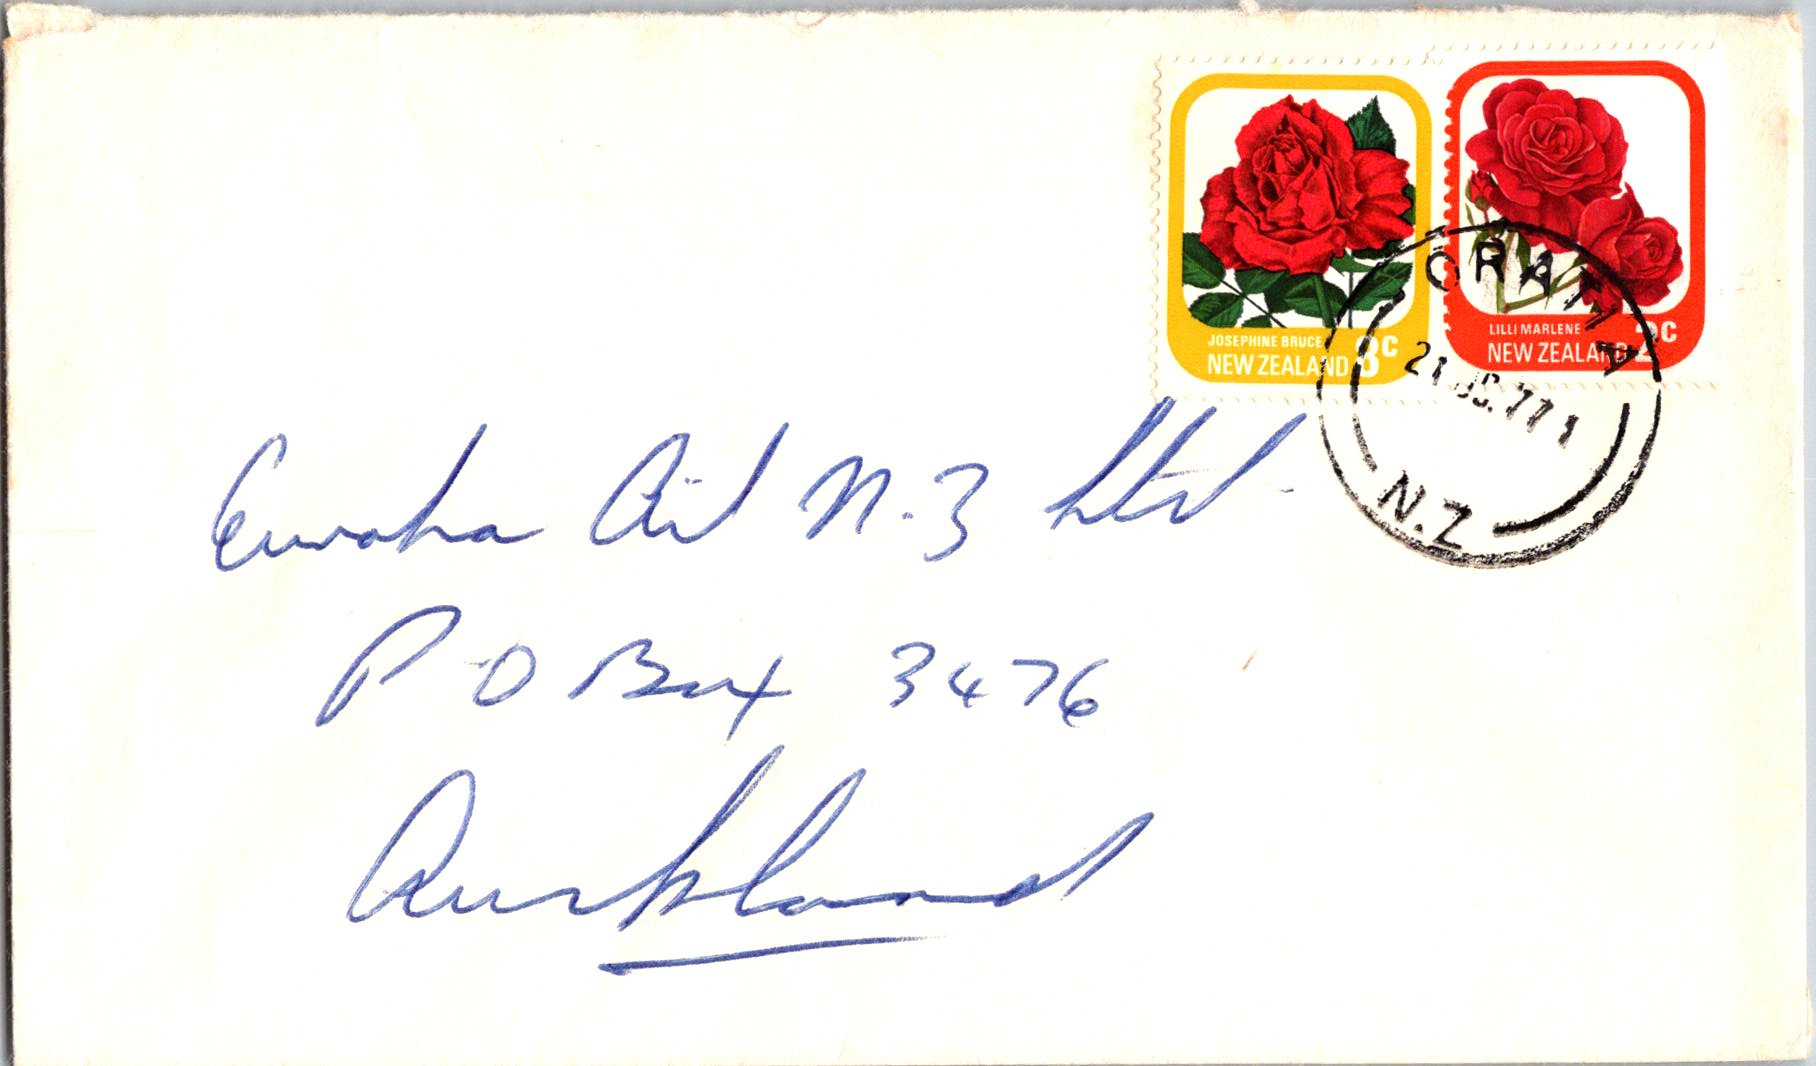 JOSEPHINE BRUCE
NEW ZEALAND 8c
LILLI MARLENE
NEW ZEALAND 2c
ORAMA
N.Z
Air N.Z Ltd
P O Box 3476
Auckland